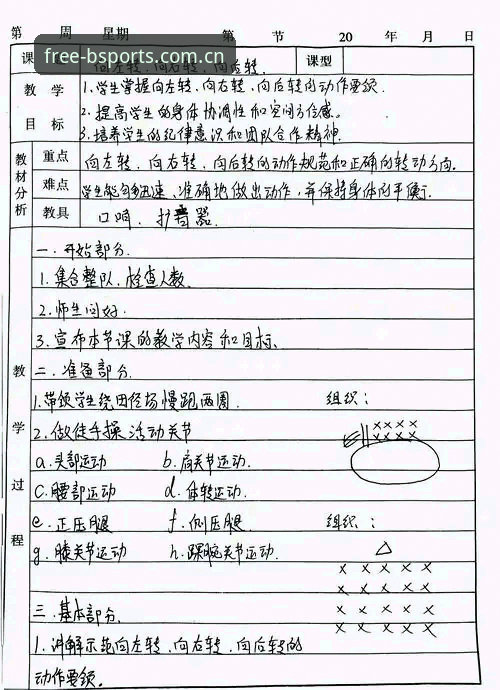 第 周 星期 第 节 20 年 月 日
free-bsports.com.cn
课 课型
向左转、向右转、向后转.
教学目标
1.学生掌握向左转、向右转、向后转的动作要领.
2.提高学生的身体协调性和空间方位感。
3.培养学生的纪律意识和团队合作精神.
教材分析
重点 向左转、向右转、向后转的动作规范和正确的转动方向.
难点 学生能够迅速、准确地做出动作,并保持身体的平衡.
教具 口哨、扩音器.
教学过程
一.开始部分.
1.集合整队,检查人数.
2.师生问好.
3.宣布本节课的教学内容和目标.
二.准备部分.
1.带领学生绕田径场慢跑两圈. 组织:
2.做徒手操活动关节
a.头部运动 b.肩关节运动.
c.腰部运动 d.体转运动.
e.正压腿 f.侧压腿. 组织:
g.膝关节运动 h.踝腕关节运动.
三.基本部分.
1.讲解示范向左转、向右转、向后转的
动作要领。